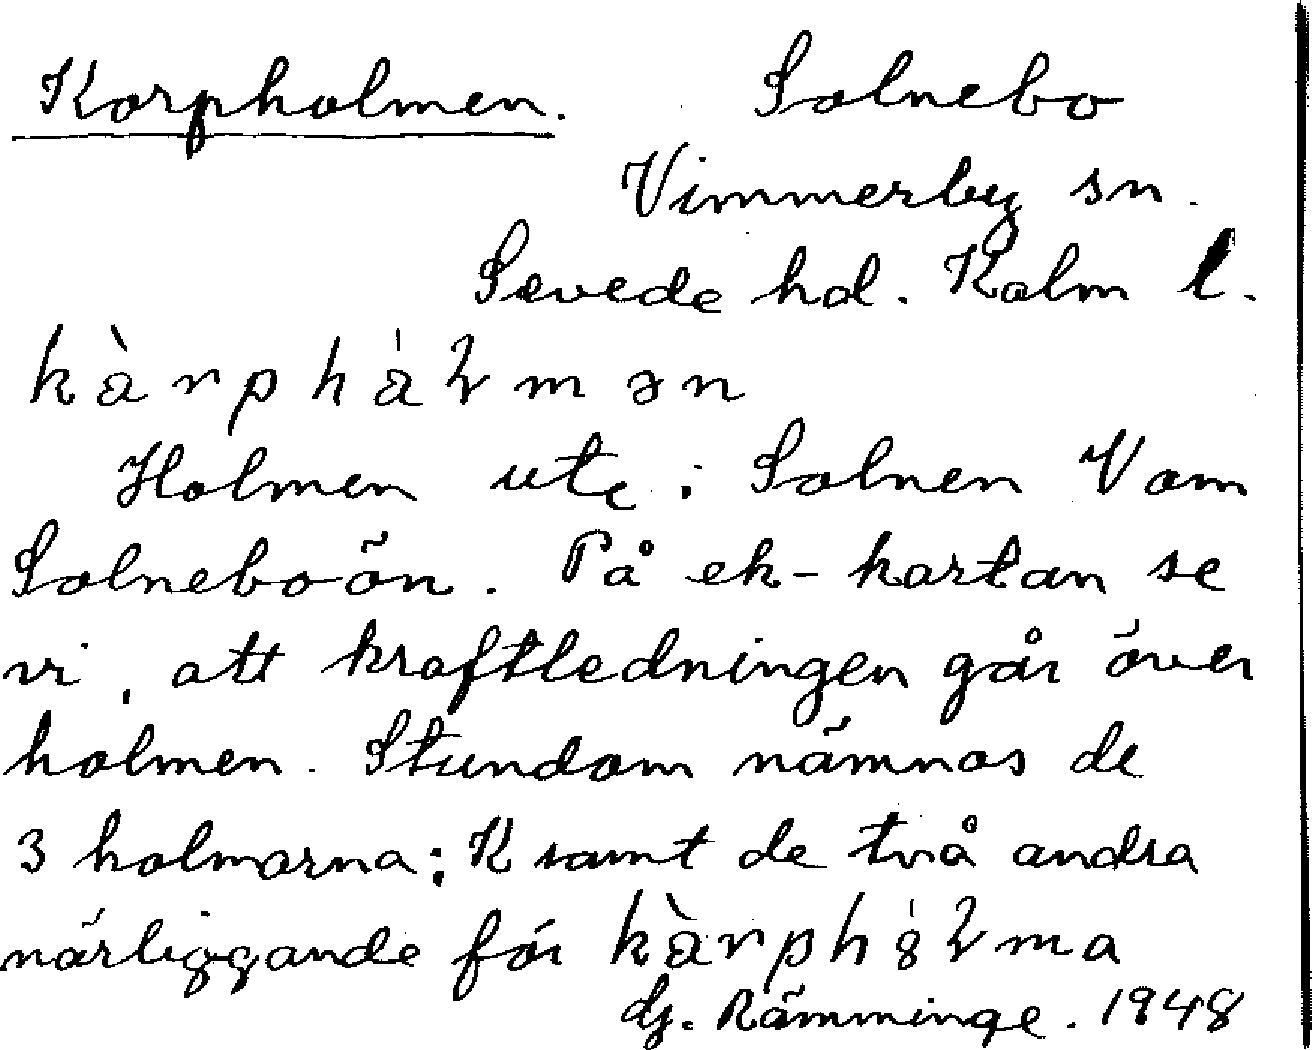 Korpholmen. Solnebo
Vimmerby sn.
Sevede hd. Kalm l.
kàrphálmən
Holmen ute i Solnen V om
Solneboön. På ek-kartan se
vi, att kraftledningen går över
holmen. Stundom nämnas de
3 holmarna: K samt de två andra
närliggande för
G. Rämminge. 1948